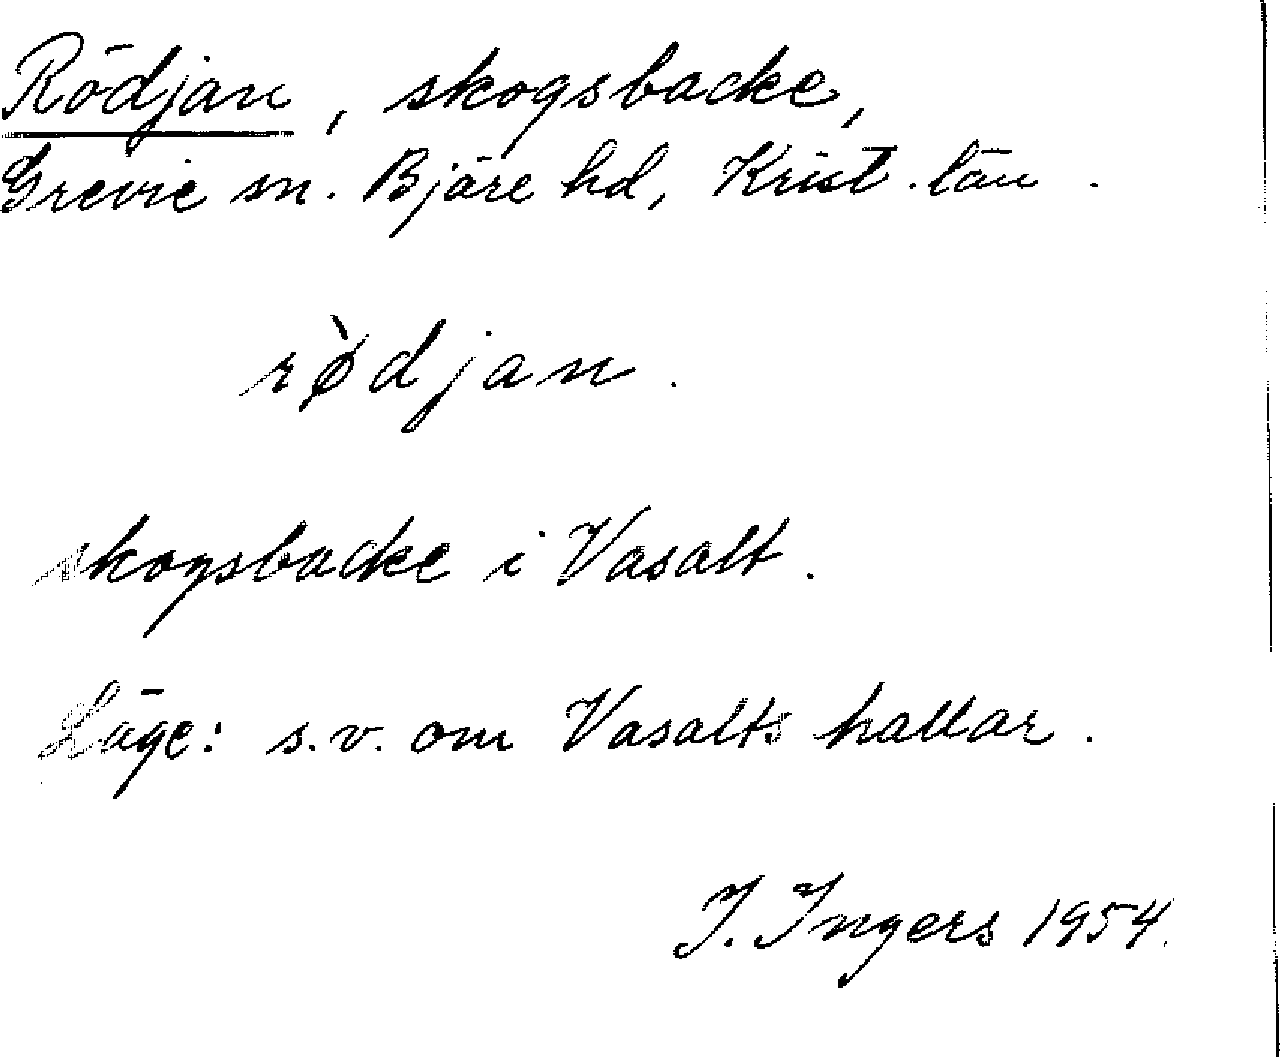 Rödjan, skogsbacke,
Grevie sn. Bjäre hd, Krist. län.
rø̀djan.
skogsbacke i Vasalt.
Läge: s.v. om Vasalts hallar.
I. Ingers 1954.